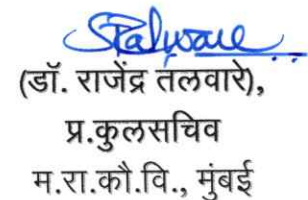 (डॉ. राजेंद्र तलवारे),
प्र.कुलसचिव
म.रा.कौ.वि., मुंबई